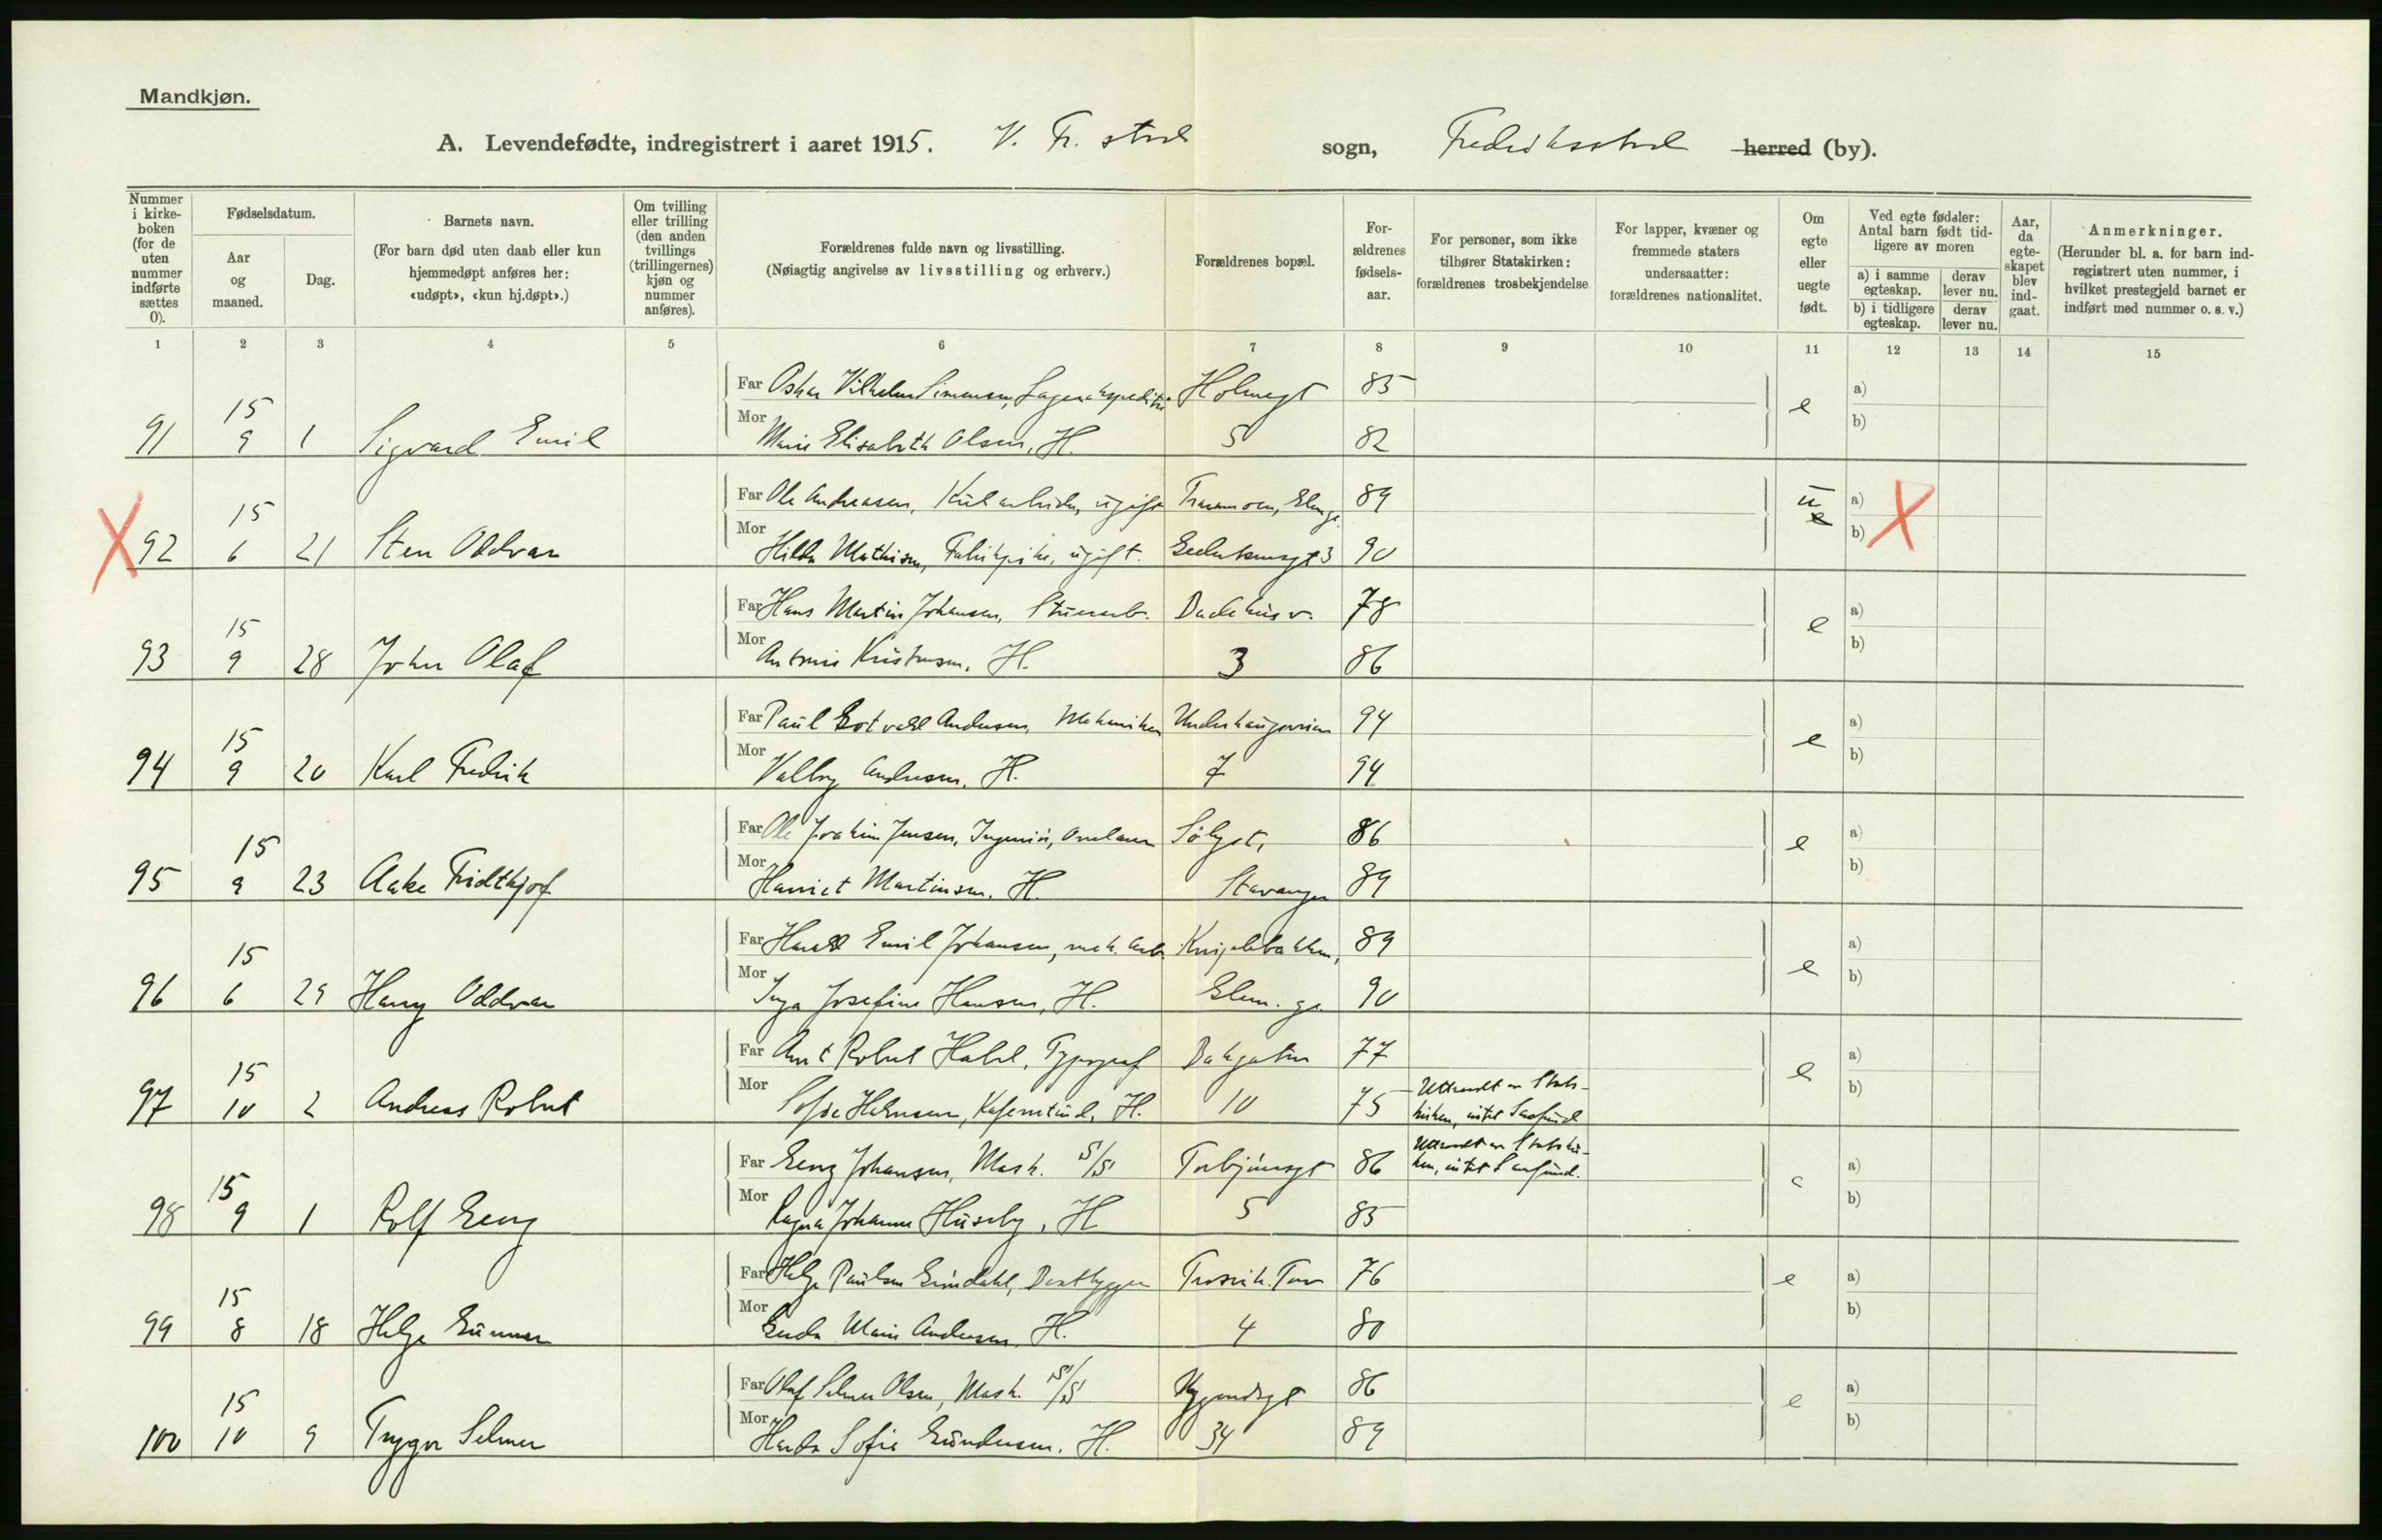 Mandkjøn.
A. Levendefødte, indregistrert i aaret 1915. V. Fr. stad sogn, Fredriksstad herred (by).
Nummer i kirke-boken (for de uten nummer indførte sættes 0).
Fødselsdatum.
Aar og maaned.
Dag.
Barnets navn.
(For barn død uten daab eller kun hjemmedøpt anføres her: «udøpt», «kun hj.døpt».)
Om tvilling eller trilling (den anden tvillings (trillingernes) kjøn og nummer anføres).
Forældrenes fulde navn og livsstilling.
(Nøiagtig angivelse av livsstilling og erhverv.)
Forældrenes bopæl.
For-ældrenes fødsels-aar.
For personer, som ikke tilhører Statskirken: forældrenes trosbekjendelse
For lapper, kvæner og fremmede staters undersaatter: forældrenes nationalitet.
Om egte eller uegte født.
Ved egte fødsler: Antal barn født tid-ligere av moren
a) i samme egteskap.
derav lever nu.
b) i tidligere egteskap.
derav lever nu.
Aar, da egte-skapet blev ind-gaat.
Anmerkninger.
(Herunder bl. a. for barn ind-registrert uten nummer, i hvilket prestegjeld barnet er indført med nummer o. s. v.)
1 2 3 4 5 6 7 8 9 10 11 12 13 14 15
Far Oskar Vilhelm Simensen, Lagerekspeditør Holmegt 85 a)
91 15 9 1 Sigvard Emil Mor Marie Elisabeth Olsen, H. 5 82 e b)
Far Ole Andreasen, ugift 89 u a)
X 92 15 6 21 Sten Oddvar Mor Hilda Mathisen, Fabrikpike, ugift. 3 90 e b) X
Far Hans Martin Johansen, 78 a)
93 15 9 28 John Olaf Mor H. 3 86 e b)
Far Paul Gotvald Andersen, Mekaniker 94 a)
94 15 9 20 Karl Fredrik Mor Valborg Andersen, H. 7 94 e b)
Far Ole Joakim Jensen, Ingeniør, 86 a)
95 15 9 23 Aake Fridthjof Mor Harriet Martinsen. H. Stavanger 89 e b)
Far Harald Emil Johansen, mek. arb. 89 a)
96 15 6 29 Harry Oddvar Mor Inga Josefine Hansen, H. Glem. 90 e b)
Far Robert Typograf 77 a)
97 15 10 2 Andreas Robert Mor Sofie H. 10 75 Uttraadt av Stats-kirken, intet Samfund e b)
Far Georg Johansen, Mask. S/S Torbjørnsgt 86 Uttraadt av Statskir-ken, intet Samfund. a)
98 15 9 1 Rolf Georg Mor Ragna Johanne Huseby, H 5 85 e b)
Far Helge Paulsen 76 a)
99 15 8 18 Helge Gunnar Mor Gerda Marie Andersen, H. 4 80 e b)
Far Olaf Selmer Olsen, Mask. S/S 86 a)
100 15 10 9 Trygve Selmer Mor Sofie Gundersen. H. 34 89 e b)